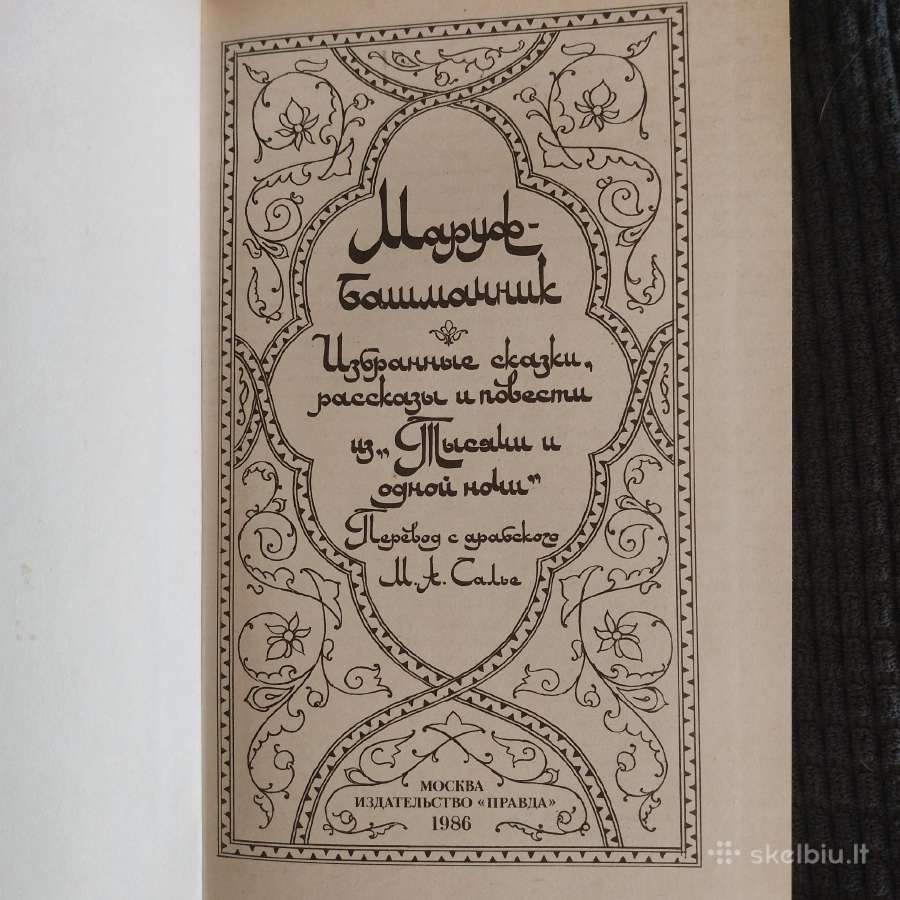 Маруф-
башмачник
Избранные сказки,
рассказы и повести
из „Тысячи и
одной ночи“
Перевод с арабского
М. А. Салье
МОСКВА
ИЗДАТЕЛЬСТВО «ПРАВДА»
1986
skelbiu.lt